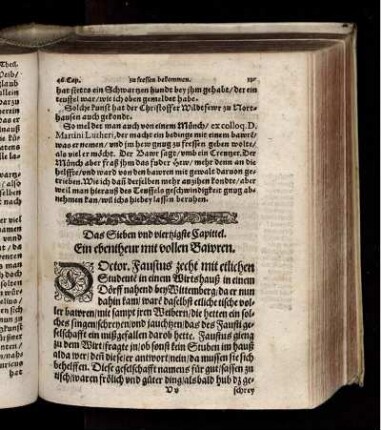 46. Cap. zu fressen bekommen.
hat stetts ein Schwartzen hundt bey jhm gehabt/ der ein
teuffel war/ wie ich oben gemeldet habe.
Solche kunst hat der Christoffer Wildtfewr zu Nort-
hausen auch gekondt.
So meldet man auch von einem Münch/ ex colloq. D.
Martini Lutheri, der macht ein bedinge mit einem bawrn/
was er nemen/ vnd jm hew gnug zu fressen geben wolte/
als viel er möcht. Der Bawr sagt/ vmb ein Creutzer. Der
Münch aber fraß jhm das fuder Hew/ mehr denn an die
helffte/ vnd ward von den bawren mit gewalt daruon ge-
trieben. Wie ich dañ derselben mehr anzihen kondte/ aber
weil man hierauß des Teuffels geschwindigkeit gnug ab-
nehmen kan/ wil ichs hiebey lassen beruhen.
Das Sieben vnd viertzigste Capittel.
Ein ebentheur mit vollen Bawren.
DOctor. Faustus zecht mit etlichen
Studentē in einem Wirtshauß in einem
Dorff nahend bey Wittemberg/ da er nun
dahin kam/ warē daselbst etliche tische vol-
ler bawren/ mit sampt jren Weibern/ die hetten ein sol-
ches singen/ schreyen/ vnd jauchtzen/ das des Fausti ge-
selschafft ein mißgefallen darob hette. Faustus gieng
zu dem Wirt/ fragte jn/ ob sonst kein Stuben im hauß
alda wer/ deñ diese/ er antwort/ nein/ da müssen sie sich
behelffen. Diese geselschafft namens für gut/ sassen zu
tisch/ waren frölich vnd güter ding/ als bald hub dz ge-
schrey
Theil.
hat